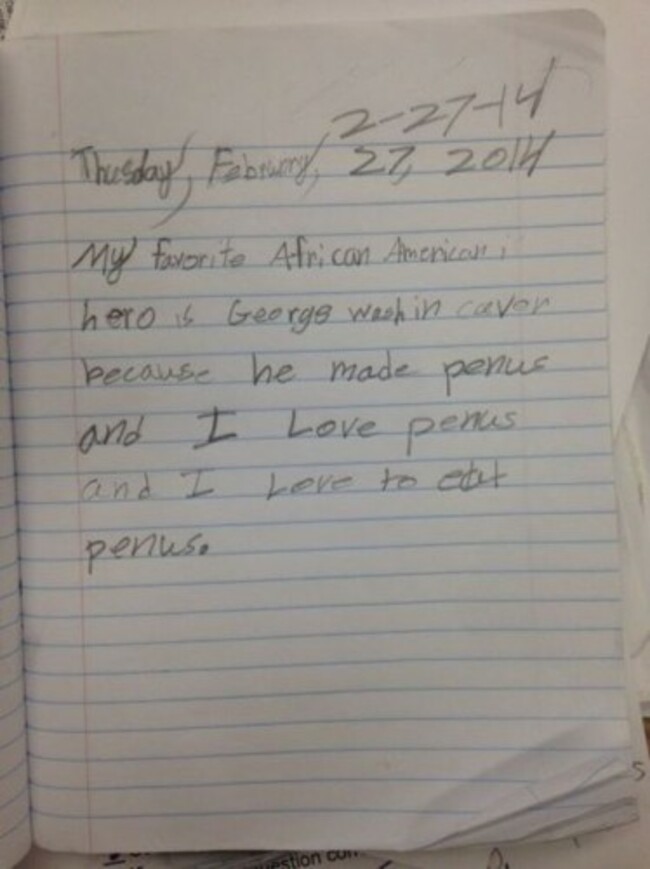 2-27-14
Thusday, February, 27, 2014
My favorite African American
hero is George washin caver
because he made penus
and I Love penus
and I Love to eat
penus.
s
estion